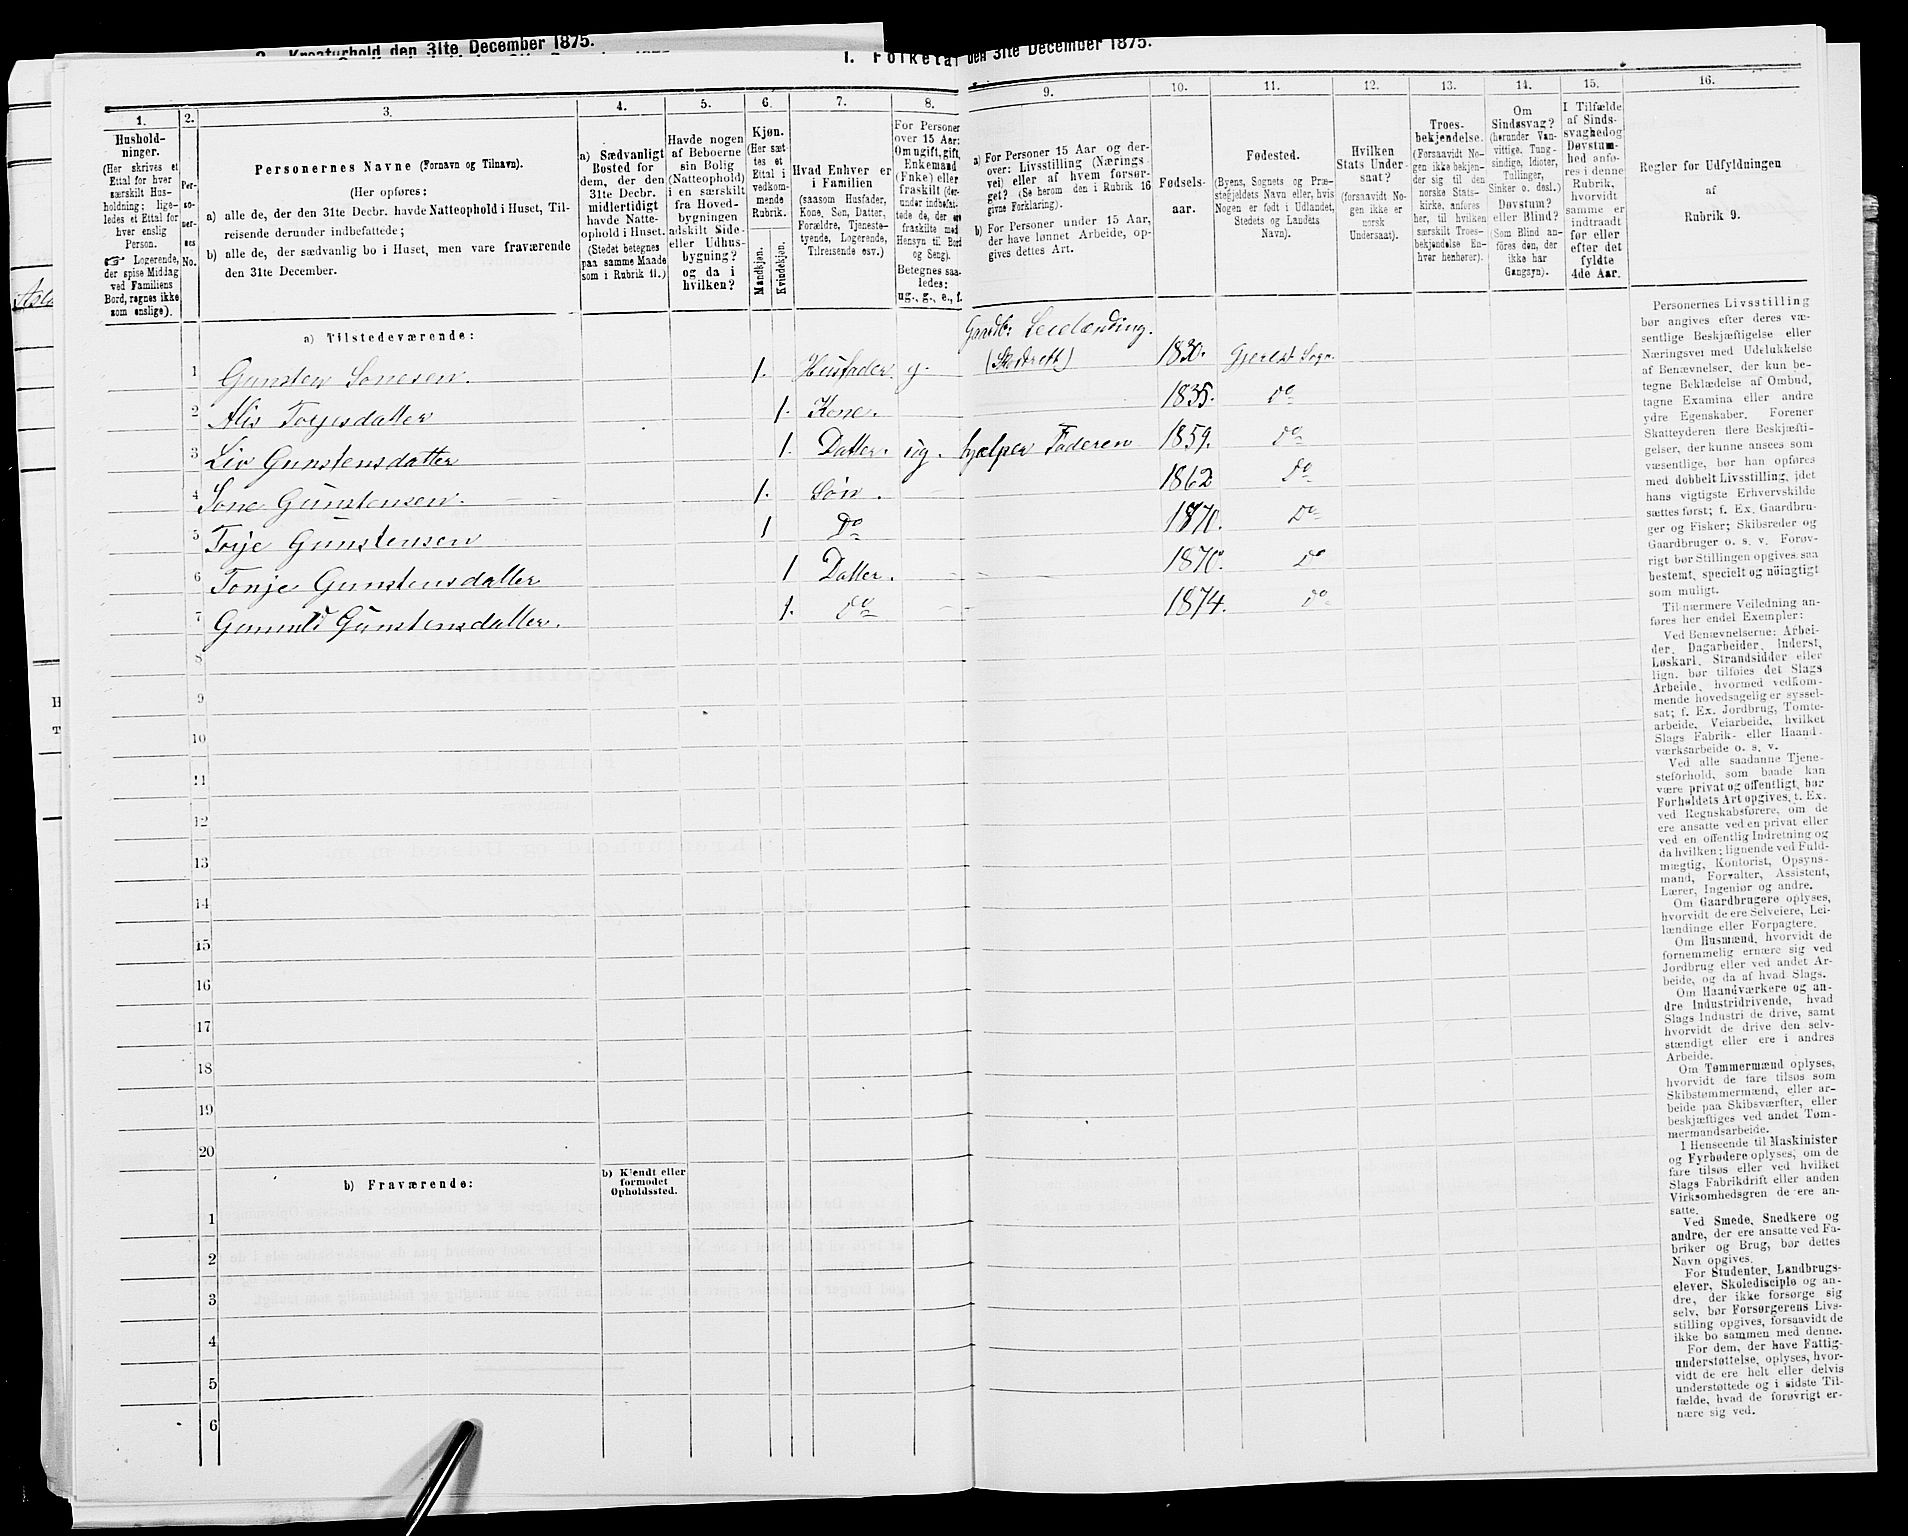 2. Kreaturhold den 31te December 1875.
1. Folketal den 31te December 1875.
1.
2.
3.
4.
5.
6.
7.
8.
9.
10.
11.
12.
13.
14.
15.
16.
Hushold-
ninger.
(Her skrives et
Ettal for hver
særskilt Hus-
holdning; lige-
ledes et Ettal for
hver enslig
Person.
☞ Logerende,
der spise Middag
ved Familiens
Bord, regnes ikke
som enslige).
Per-
so-
ner-
nes
No.
Personernes Navne (Fornavn og Tilnavn).
(Her opføres:
a) alle de, der den 31te Decbr. havde Natteophold i Huset, Til-
reisende derunder indbefattede;
b) alle de, der sædvanlig bo i Huset, men vare fraværende
den 31te December.
a) Sædvanligt
Bosted for
dem, der den
31te Decbr.
midlertidigt
havde Natte-
ophold i Huset.
(Stedet betegnes
paa samme Maade
som i Rubrik 11.)
Havde nogen
af Beboerne
sin Bolig
(Natteophold)
i en særskilt
fra Hoved-
bygningen
adskilt Side-
eller Udhus-
bygning?
og da i
hvilken?
Kjøn.
(Her sæt-
tes et
Ettal i
vedkom-
mende
Rubrik.
Mandkjøn.
Kvindekjøn.
Hvad Enhver er
i Familien
(saasom Husfader,
Kone, Søn, Datter,
Forældre, Tjeneste-
tyende, Logerende,
Tilreisende osv.)
For Personer
over 15 Aar:
Om ugift, gift,
Enkemand
(Enke) eller
fraskilt (der-
under indbefat-
tede de, der ere
fraskilte med
Hensyn til Bord
og Seng).
Betegnes saa-
ledes:
ug., g., e., f.
a) For Personer 15 Aar og der-
over: Livsstilling (Nærings-
vei) eller af hvem forsør-
get? (Se herom den i Rubrik 16
givne Forklaring).
b) For Personer under 15 Aar,
der have lønnet Arbeide, op-
gives dettes Art.
Fødsels-
aar.
Fødested.
(Byens, Sognets og Præ-
stegjeldets Navn eller, hvis
Nogen er født i Udlandet,
Stedets og Landets
Navn).
Hvilken
Stats Under-
saat?
(forsaavidt No-
gen ikke er
norsk
Undersaat).
Troes-
bekjendelse.
(Forsaavidt No-
gen ikke bekjen-
der sig til den
norske Stats-
kirke, anføres
her, til hvilken
særskilt Troes-
bekjendelse En-
hver henhører).
Om
Sindssvag?
(herunder Van-
vittige, Tung-
sindige, Idioter,
Tullinger,
Sinker o. desl.)
Døvstum?
eller Blind?
(Som Blind an-
føres den, der
ikke har
Gangsyn).
I Tilfælde
af Sinds-
svaghed og
Døvstum-
hed anfø-
res i denne
Rubrik,
hvorvidt
samme er
indtraadt
før eller
efter det
fyldte
4de Aar.
Regler for Udfyldningen
af
Rubrik 9.
a) Tilstedeværende:
1 Gunsten Sonesen. 1. Husfader. g. Gaardbr. Leilænding. 1830.
2 Alis Torjesdatter 1. Kone. 1835. Do
3 Liv Gunstensdatter 1. Datter. ug. hjælper Faderen 1859. Do
4 Sone Gunstensen. 1. Søn. 1862 Do
5 Torje Gunstensen 1 Do 1870. Do
6 Tonje Gunstensdatter 1 Datter. 1870. Do
7 Gunnild Gunstensdatter. 1. Do 1874. Do
8
9
10
11
12
13
14
15
16
17
18
19
20
b) Fraværende:
b) Kjendt eller
formodet
Opholdssted.
1
2
3
4
5
6
Personernes Livsstilling
bør angives efter deres væ-
sentlige Beskjæftigelse eller
Næringsvei med Udelukkelse
af Benævnelser, der kun be-
tegne Beklædelse af Ombud,
tagne Examina eller andre
ydre Egenskaber. Forener
Skatteyderen flere Beskjæfti-
gelser, der kunne ansees som
væsentlige, bør han opføres
med dobbelt Livsstilling, idet
hans vigtigste Erhvervskilde
sættes først; f. Ex. Gaardbru-
ger og Fisker; Skibsreder og
Gaardbruger o. s. v. Forøv-
rigt bør Stillingen opgives saa
bestemt, specielt og nøiagtigt
som muligt.
Til nærmere Veiledning an-
føres her endel Exempler:
Ved Benævnelserne: Arbei-
der, Dagarbeider, Inderst,
Løskarl, Strandsidder eller
lign. bør tilføies det Slags
Arbeide, hvormed vedkom-
mende hovedsagelig er syssel-
sat; f. Ex. Jordbrug, Tomte-
arbeide, Veiarbeide, hvilket
Slags Fabrik- eller Haand-
værksarbeide o. s. v.
Ved alle saadanne Tjene-
steforhold, som baade kan
være privat og offentligt, bør
Forholdets Art opgives, t. Ex.
ved Regnskabsførere, om de
ere ansatte ved en privat eller
ved en offentlig Indretning og
da hvilken; lignende ved Fuld-
mægtig, Kontorist, Opsyns-
mand, Forvalter, Assistent,
Lærer, Ingeniør og andre.
Om Gaardbrugere oplyses,
hvorvidt de ere Selveiere, Lei-
lændinge eller Forpagtere.
Om Husmænd, hvorvidt de
fornemmelig ernære sig ved
Jordbrug eller ved andet Ar-
beide, og da af hvad Slags.
Om Haandværkere og an-
dre Industridrivende, hvad
Slags Industri de drive, samt
hvorvidt de drive den selv-
stændigt eller ere i andres
Arbeide.
Om Tømmermænd oplyses,
hvorvidt de fare tilsøs som
Skibstømmermænd, eller ar-
beide paa Skibsværfter, eller
beskjæftiges ved andet Tøm-
mermandsarbeide.
I Henseende til Maskinister
og Fyrbødere oplyses, om de
fare tilsøs eller ved hvilket
Slags Fabrikdrift eller anden
Virksomhedsgren de ere an-
satte.
Ved Smede, Snedkere og
andre, der ere ansatte ved Fa-
briker og Brug, bør dettes
Navn opgives.
For Studenter, Landbrugs-
elever, Skoledisciple og an-
dre, der ikke forsørge sig
selv, bør Forsørgerens Livs-
stilling opgives, forsaavidt de
ikke bo sammen med denne.
For dem, der have Fattig-
understøttelse, oplyses, hvor-
vidt de ere helt eller delvis
understøttede og i sidste Til-
fælde, hvad de forøvrigt er-
nære sig ved.